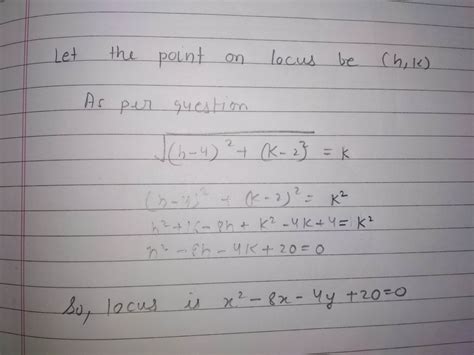 Let the point on locus be (h,k)
As per question
√(h-4)² + (k-2)² = k
(h-4)² + (k-2)² = k²
h²+16-8h+k²-4k+4=k²
h²-8h-4k+20=0
So, locus is x²-8x-4y+20=0